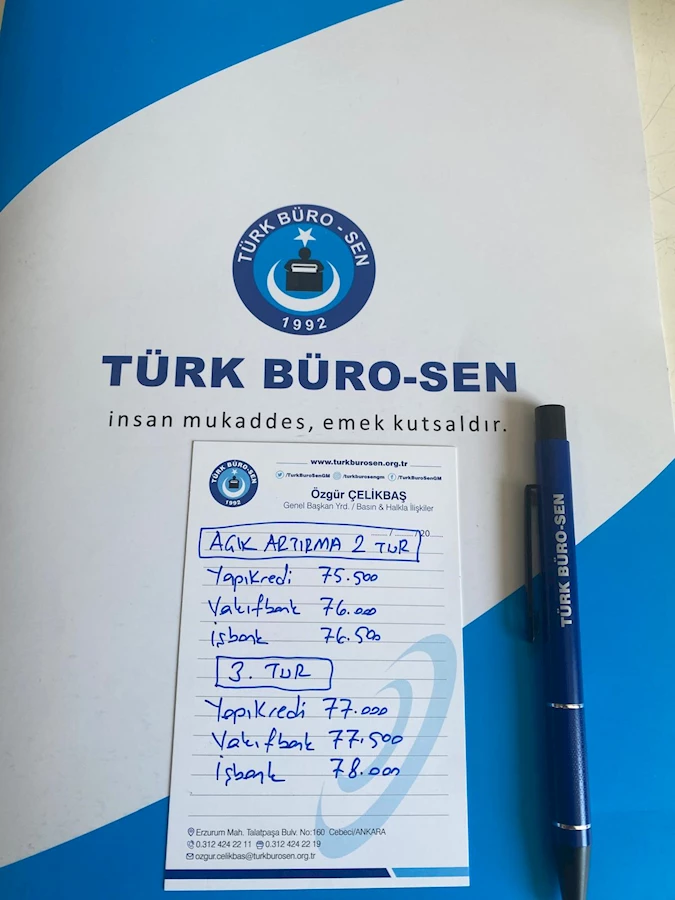 TÜRK BÜRO - SEN
1992
TÜRK BÜRO-SEN
insan mukaddes, emek kutsaldır.
TÜRK BÜRO-SEN
1992
www.turkburosen.org.tr
/TurkBuroSenGM /turkburosengm /TurkBuroSenGM
Özgür ÇELİKBAŞ
Genel Başkan Yrd. / Basın & Halkla İlişkiler
/ /20
AÇIK ARTIRMA 2 TUR
YapıKredi 75.500
Vakıfbank 76.000
işbank 76.500
3. TUR
YapıKredi 77.000
Vakıfbank 77.500
işbank 78.000
Erzurum Mah. Talatpaşa Bulv. No:160 Cebeci/ANKARA
0.312 424 22 11 0.312 424 22 19
ozgur.celikbas@turkburosen.org.tr
TÜRK BÜRO-SEN